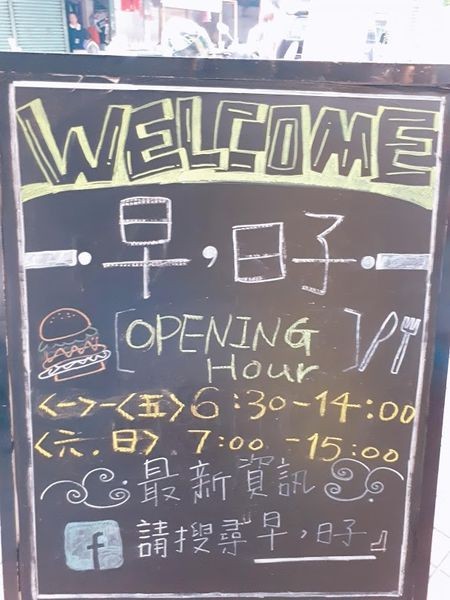 WELCOME
早，日子
[OPENING
Hour]
<一>-<五> 6:30-14:00
<六.日> 7:00-15:00
最新資訊
f 請搜尋『早，日子』